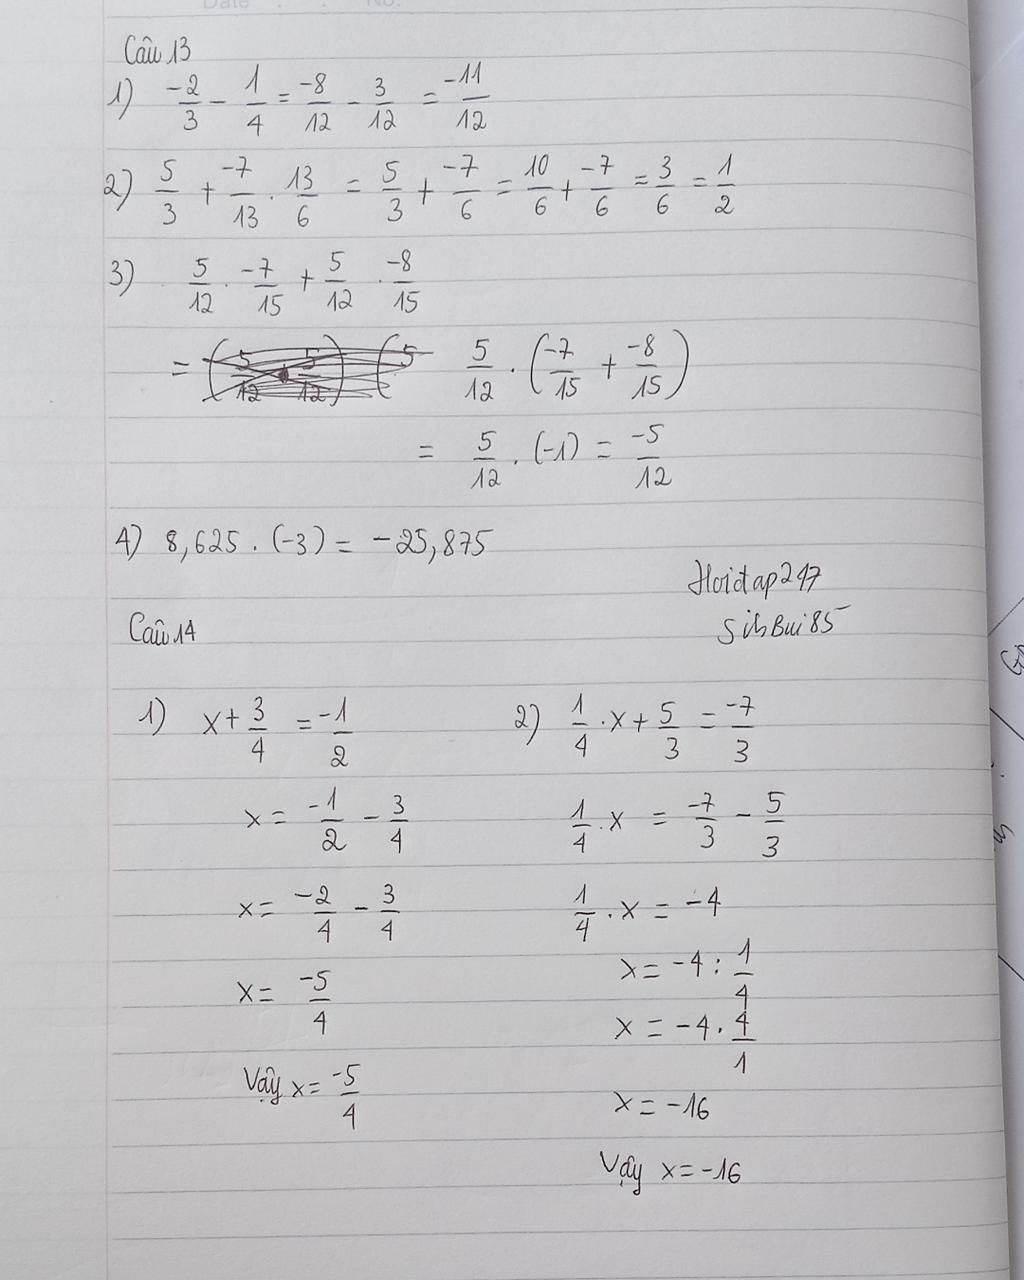 Date . . No.
Câu 13
1) -2/3 - 1/4 = -8/12 - 3/12 = -11/12
2) 5/3 + -7/13 . 13/6 = 5/3 + -7/6 = 10/6 + -7/6 = 3/6 = 1/2
3) 5/12 . -7/15 + 5/12 . -8/15
= 5/12 . (-7/15 + -8/15)
= 5/12 . (-1) = -5/12
4) 8,625 . (-3) = -25,875
Hoidap247
SihBui85
Câu 14
1) x + 3/4 = -1/2
x = -1/2 - 3/4
x = -2/4 - 3/4
x = -5/4
Vậy x = -5/4
2) 1/4 . x + 5/3 = -7/3
1/4 . x = -7/3 - 5/3
1/4 . x = -4
x = -4 : 1/4
x = -4 . 4/1
x = -16
Vậy x = -16